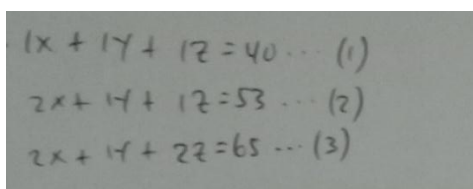 1x + 1y + 1z = 40 ... (1)
2x + 1y + 1z = 53 ... (2)
2x + 1y + 2z = 65 ... (3)